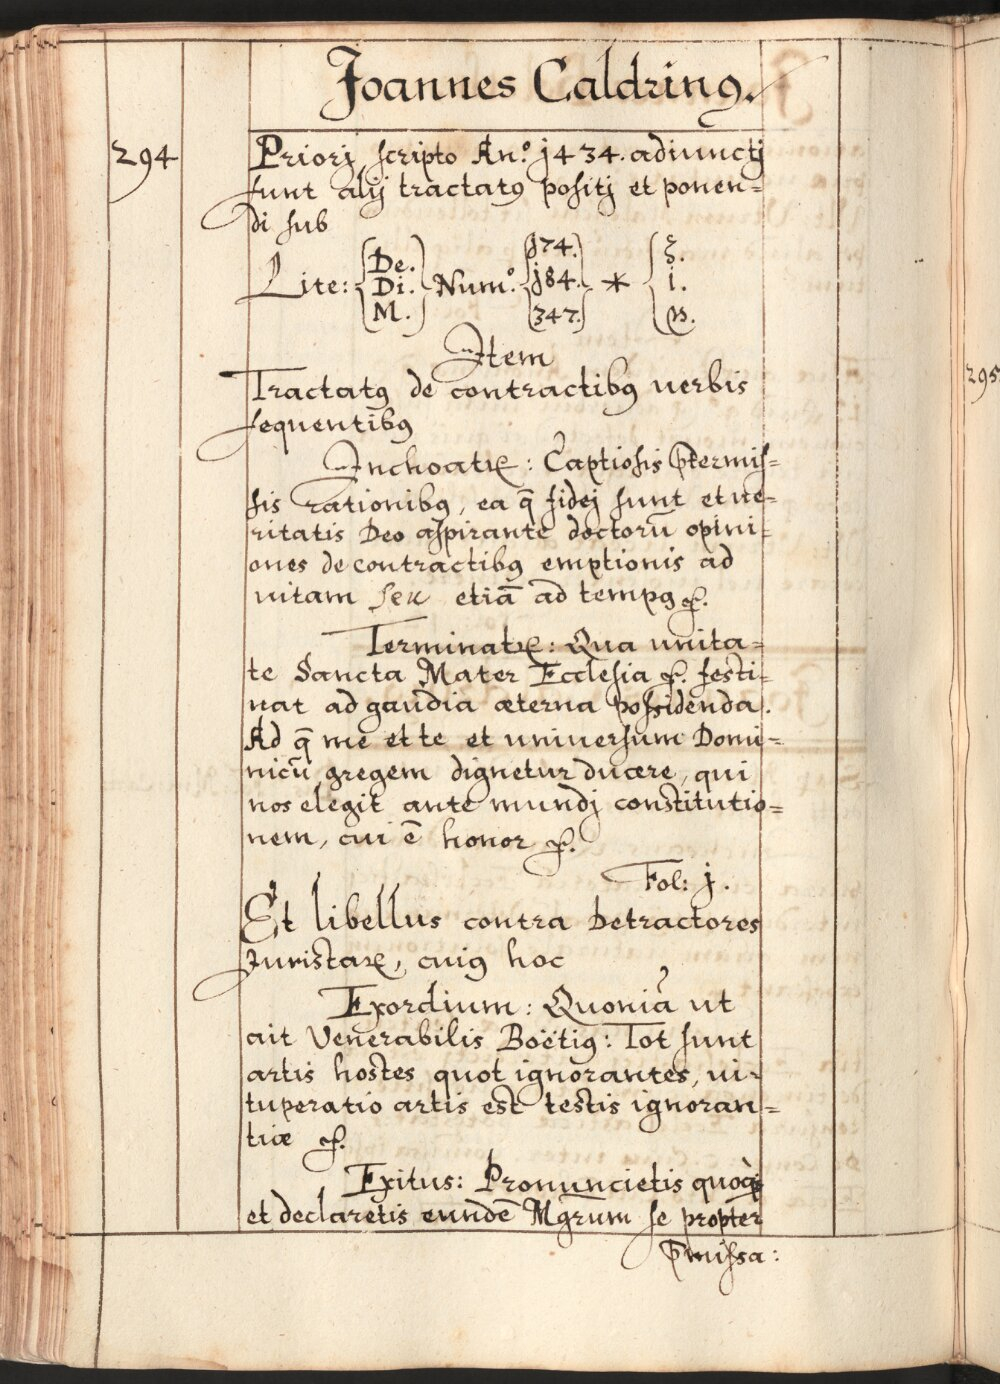 Joannes Caldrinꝯ.
294
Priorj scripto Anº. j434. adiunctj
sunt alij tractatꝯ positj et ponen=
di sub
Lite: { De. Di. M. } Num.º { j74. j84. 347. } * { ξ. i. n. }
Item
Tractatꝯ de contractibꝯ uerbis
sequentibꝯ
Inchoatꝛ: Captiosis p̄termis=
sis rationibꝯ, ea q̄ fidej sunt et ue=
ritatis Deo aspirante doctorū opini=
ones de contractibꝯ emptionis ad
uitam seu etiā ad tempꝯ &.
Terminatꝛ: Qua unita=
te Sancta Mater Ecclesia &. festi=
nat ad gaudia æterna possidenda.
Ad q̄ me et te et uniuersum Domi=
nicū gregem dignetur ducere, qui
nos elegit ante mundj constitutio=
nem, cui ē honor &.
Fol: j.
Et libellus contra Detractores
Juristaꝝ, cuiꝯ hoc
Exordium: Quoniā ut
ait Venerabilis Boëtiꝯ: Tot sunt
artis hostes quot ignorantes, ui=
tuperatio artis est testis ignoran=
tiæ &.
Exitus: Pronuncietis quoqꝫ
et declaretis eundē Mgr̄um se propter
p̄missa:
295